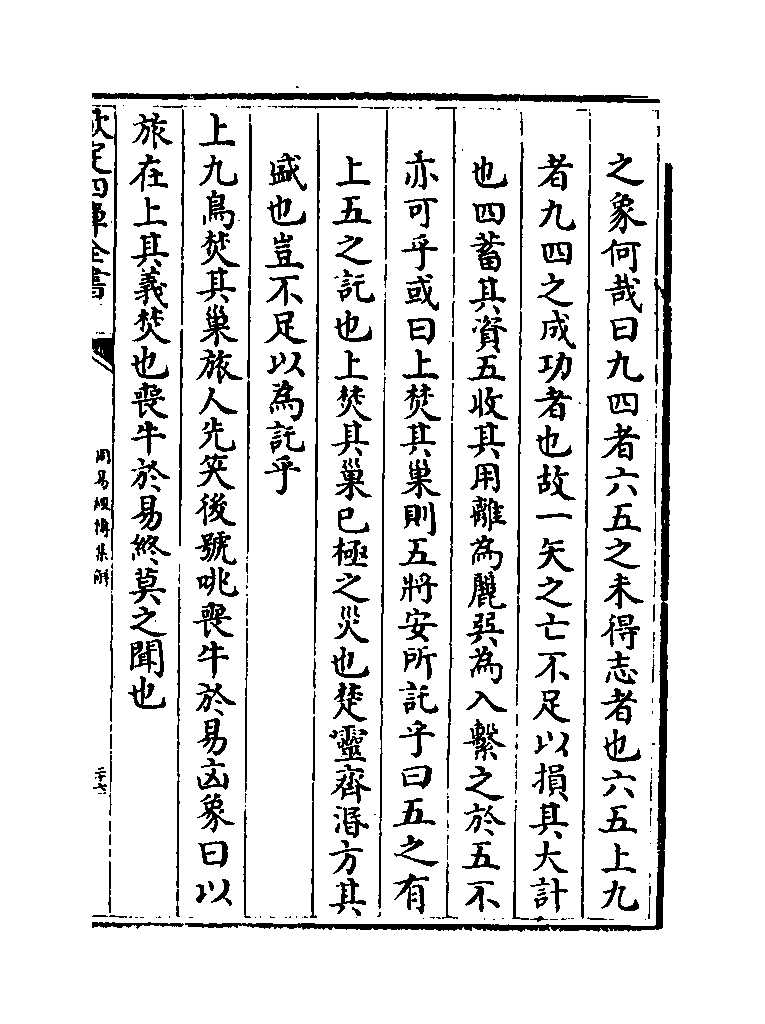 之象何哉曰九四者六五之未得志者也六五上九
者九四之成功者也故一矢之亡不足以損其大計
也四蓄其資五收其用離為麗巽為入繫之於五不
亦可乎或曰上焚其巢則五將安所託乎曰五之有
上五之託也上焚其巢已極之災也楚靈齊湣方其
盛也豈不足以為託乎
上九鳥焚其巢旅人先笑後號咷喪牛於易凶象曰以
旅在上其義焚也喪牛於易終莫之聞也
欽定四庫全書
周易經傳集解
二十七